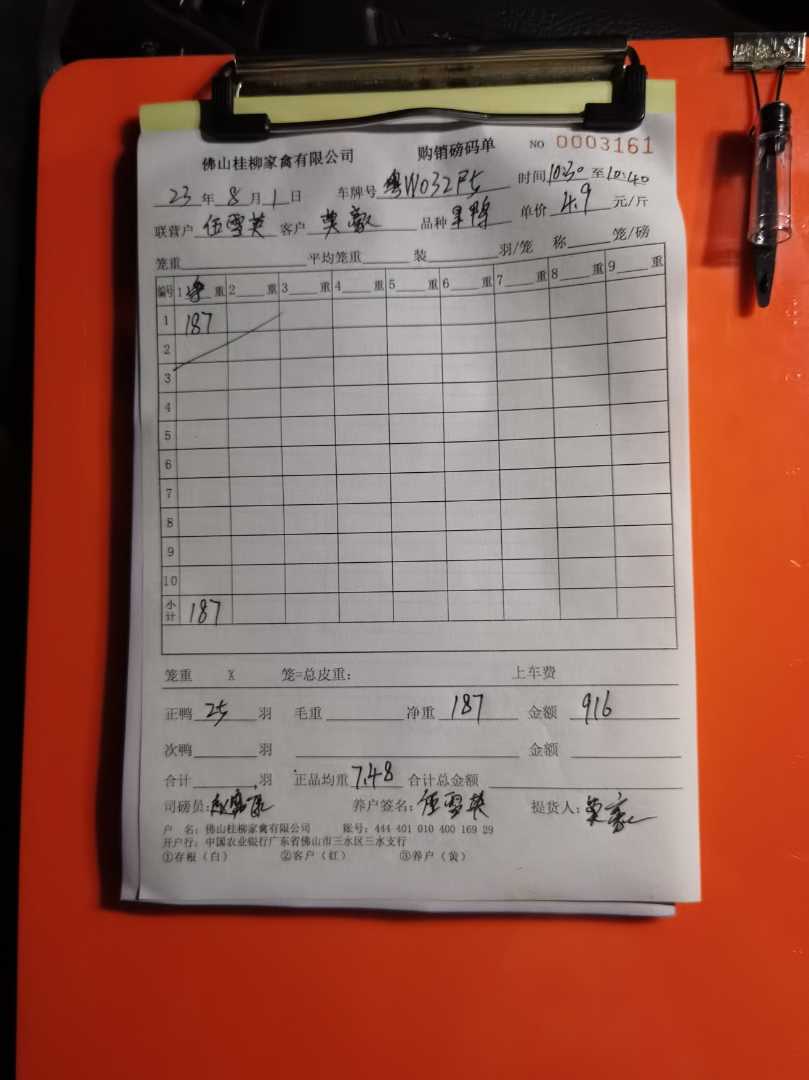 佛山桂柳家禽有限公司 购销磅码单 NO 0003161
23年8月1日 车牌号 粤W032 时间10:30至10:40
联营户 伍雪英 客户 英豪 品种 单价 4.9 元/斤
笼重 平均笼重 装 羽/笼 称 笼/磅
编号 1 重 2 重 3 重 4 重 5 重 6 重 7 重 8 重 9 重
1 187
2
3
4
5
6
7
8
9
10
小计 187
笼重 X 笼=总皮重: 上车费
正鸭 25 羽 毛重 净重 187 金额 916
次鸭 羽 金额
合计 羽 正品均重 7.48 合计总金额
司磅员: 养户签名: 伍雪英 提货人:
户 名: 佛山桂柳家禽有限公司 账号: 444 401 010 400 169 29
开户行: 中国农业银行广东省佛山市三水区三水支行
①存根(白) ②客户(红) ③养户(黄)